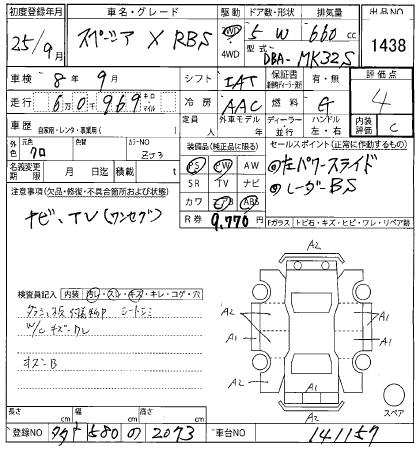 初度登録年月 車名・グレード 駆動 ドア数・形状 排気量 出品NO
25/9月 スペーシア X RBS 2WD 4WD 5 W 660 cc 1438
型式 DBA- MK32S
車検 8年 9月 シフト IAT 保証書 有・無 評価点
走行 6万0千969 キロ マイル 冷房 AAC 燃料 G 4
車歴 自家用・レンタ・事業用( ) 定員 人 外車モデル 年 ディーラー 並行 ハンドル 左・右 内装評価 C
外色 元色 クロ 色替 カラーNO ZJ3
装備品(純正品に限る) セールスポイント(正常に作動するもの)
PS PW AW
SR TV ナビ
カワ エアB ABS
R券 9,770円
◎左パワースライド
◎レーダーBS
名義変更期限 月 日迄 積載量 t
注意事項(欠品・修復・不具合箇所および状態)
ナビ、TV(ワンセグ)
Fガラス トビ石・キズ・ヒビ・ワレ・リペア跡
検査員記入 内装 汚レ・スレ・キズ・キレ・コゲ・穴
シートシミ
W/C キズ・ワレ
キズ・B
A2
A2
A1
A1
A1
A2
A1
A1
A2
スペア
長さ cm 幅 cm 高さ cm
登録NO 580 の 2073 車台NO 141157